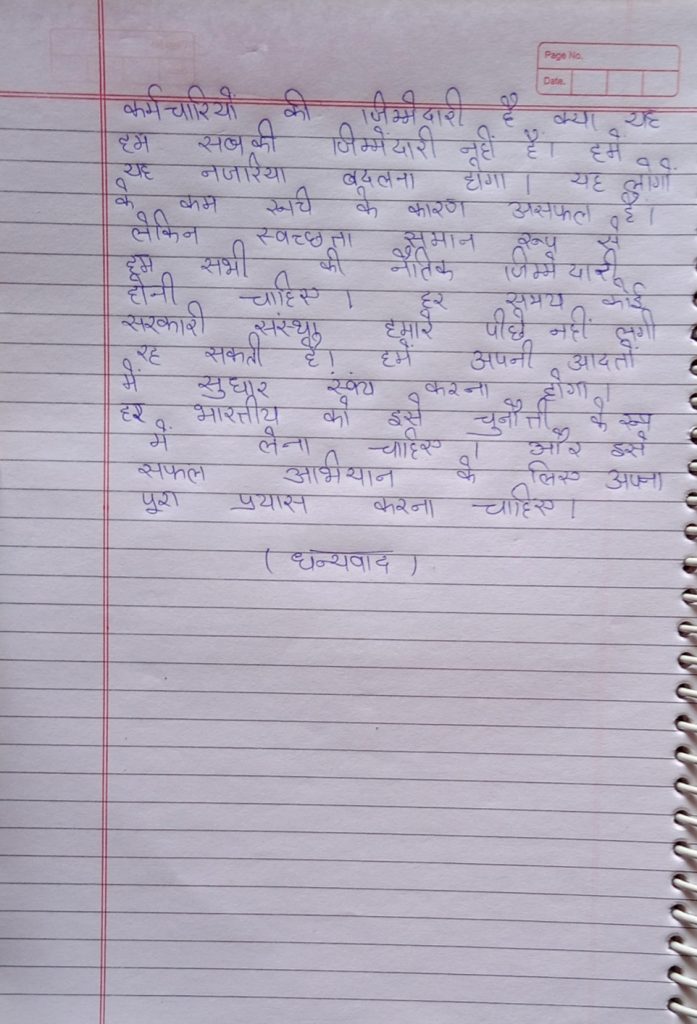 Page No.
Date.
कर्मचारियों की जिम्मेदारी है क्या यह
हम सबकी जिम्मेंदारी नहीं है। हमें
यह नजरिया बदलना होगा। यह लोगों
के कम रूची के कारण असफल है।
लेकिन स्वच्छता समान रूप से
हम सभी की नैतिक जिम्मेदारी
होनी चाहिए। हर समय कोई
सरकारी संस्था हमारे पीछे नहीं लगी
रह सकती है। हमें अपनी आदतों
में सुधार स्वंय करना होगा।
हर भारतीय को इसे चुनौती के रूप
में लेना चाहिए। और इसे
सफल अभियान के लिए अपना
पूरा प्रयास करना चाहिए।
( धन्यवाद )